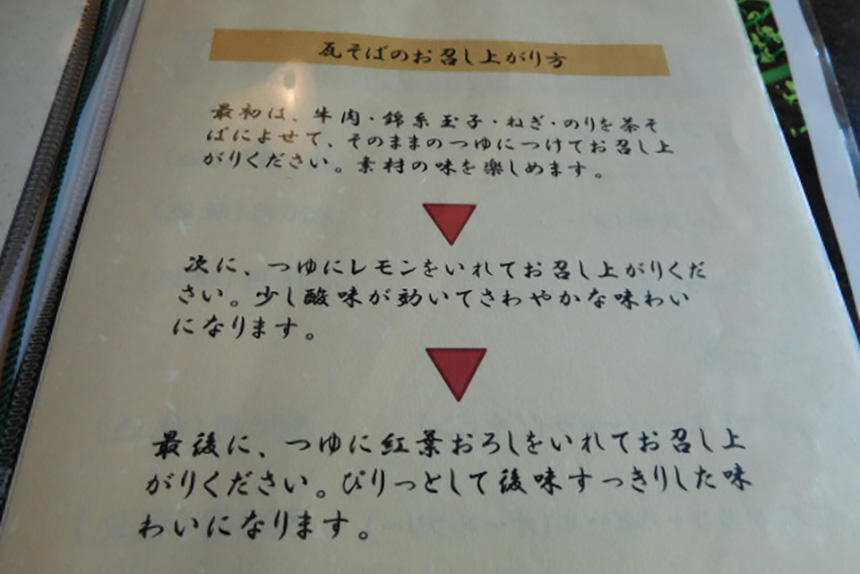 瓦そばのお召し上がり方
最初は、牛肉・錦糸玉子・ねぎ・のりを茶そ
ばによせて、そのままのつゆにつけてお召し上
がりください。素材の味を楽しめます。
次に、つゆにレモンをいれてお召し上がりくだ
さい。少し酸味が効いてさわやかな味わい
になります。
最後に、つゆに紅葉おろしをいれてお召し上
がりください。ぴりっとして後味すっきりした味
わいになります。